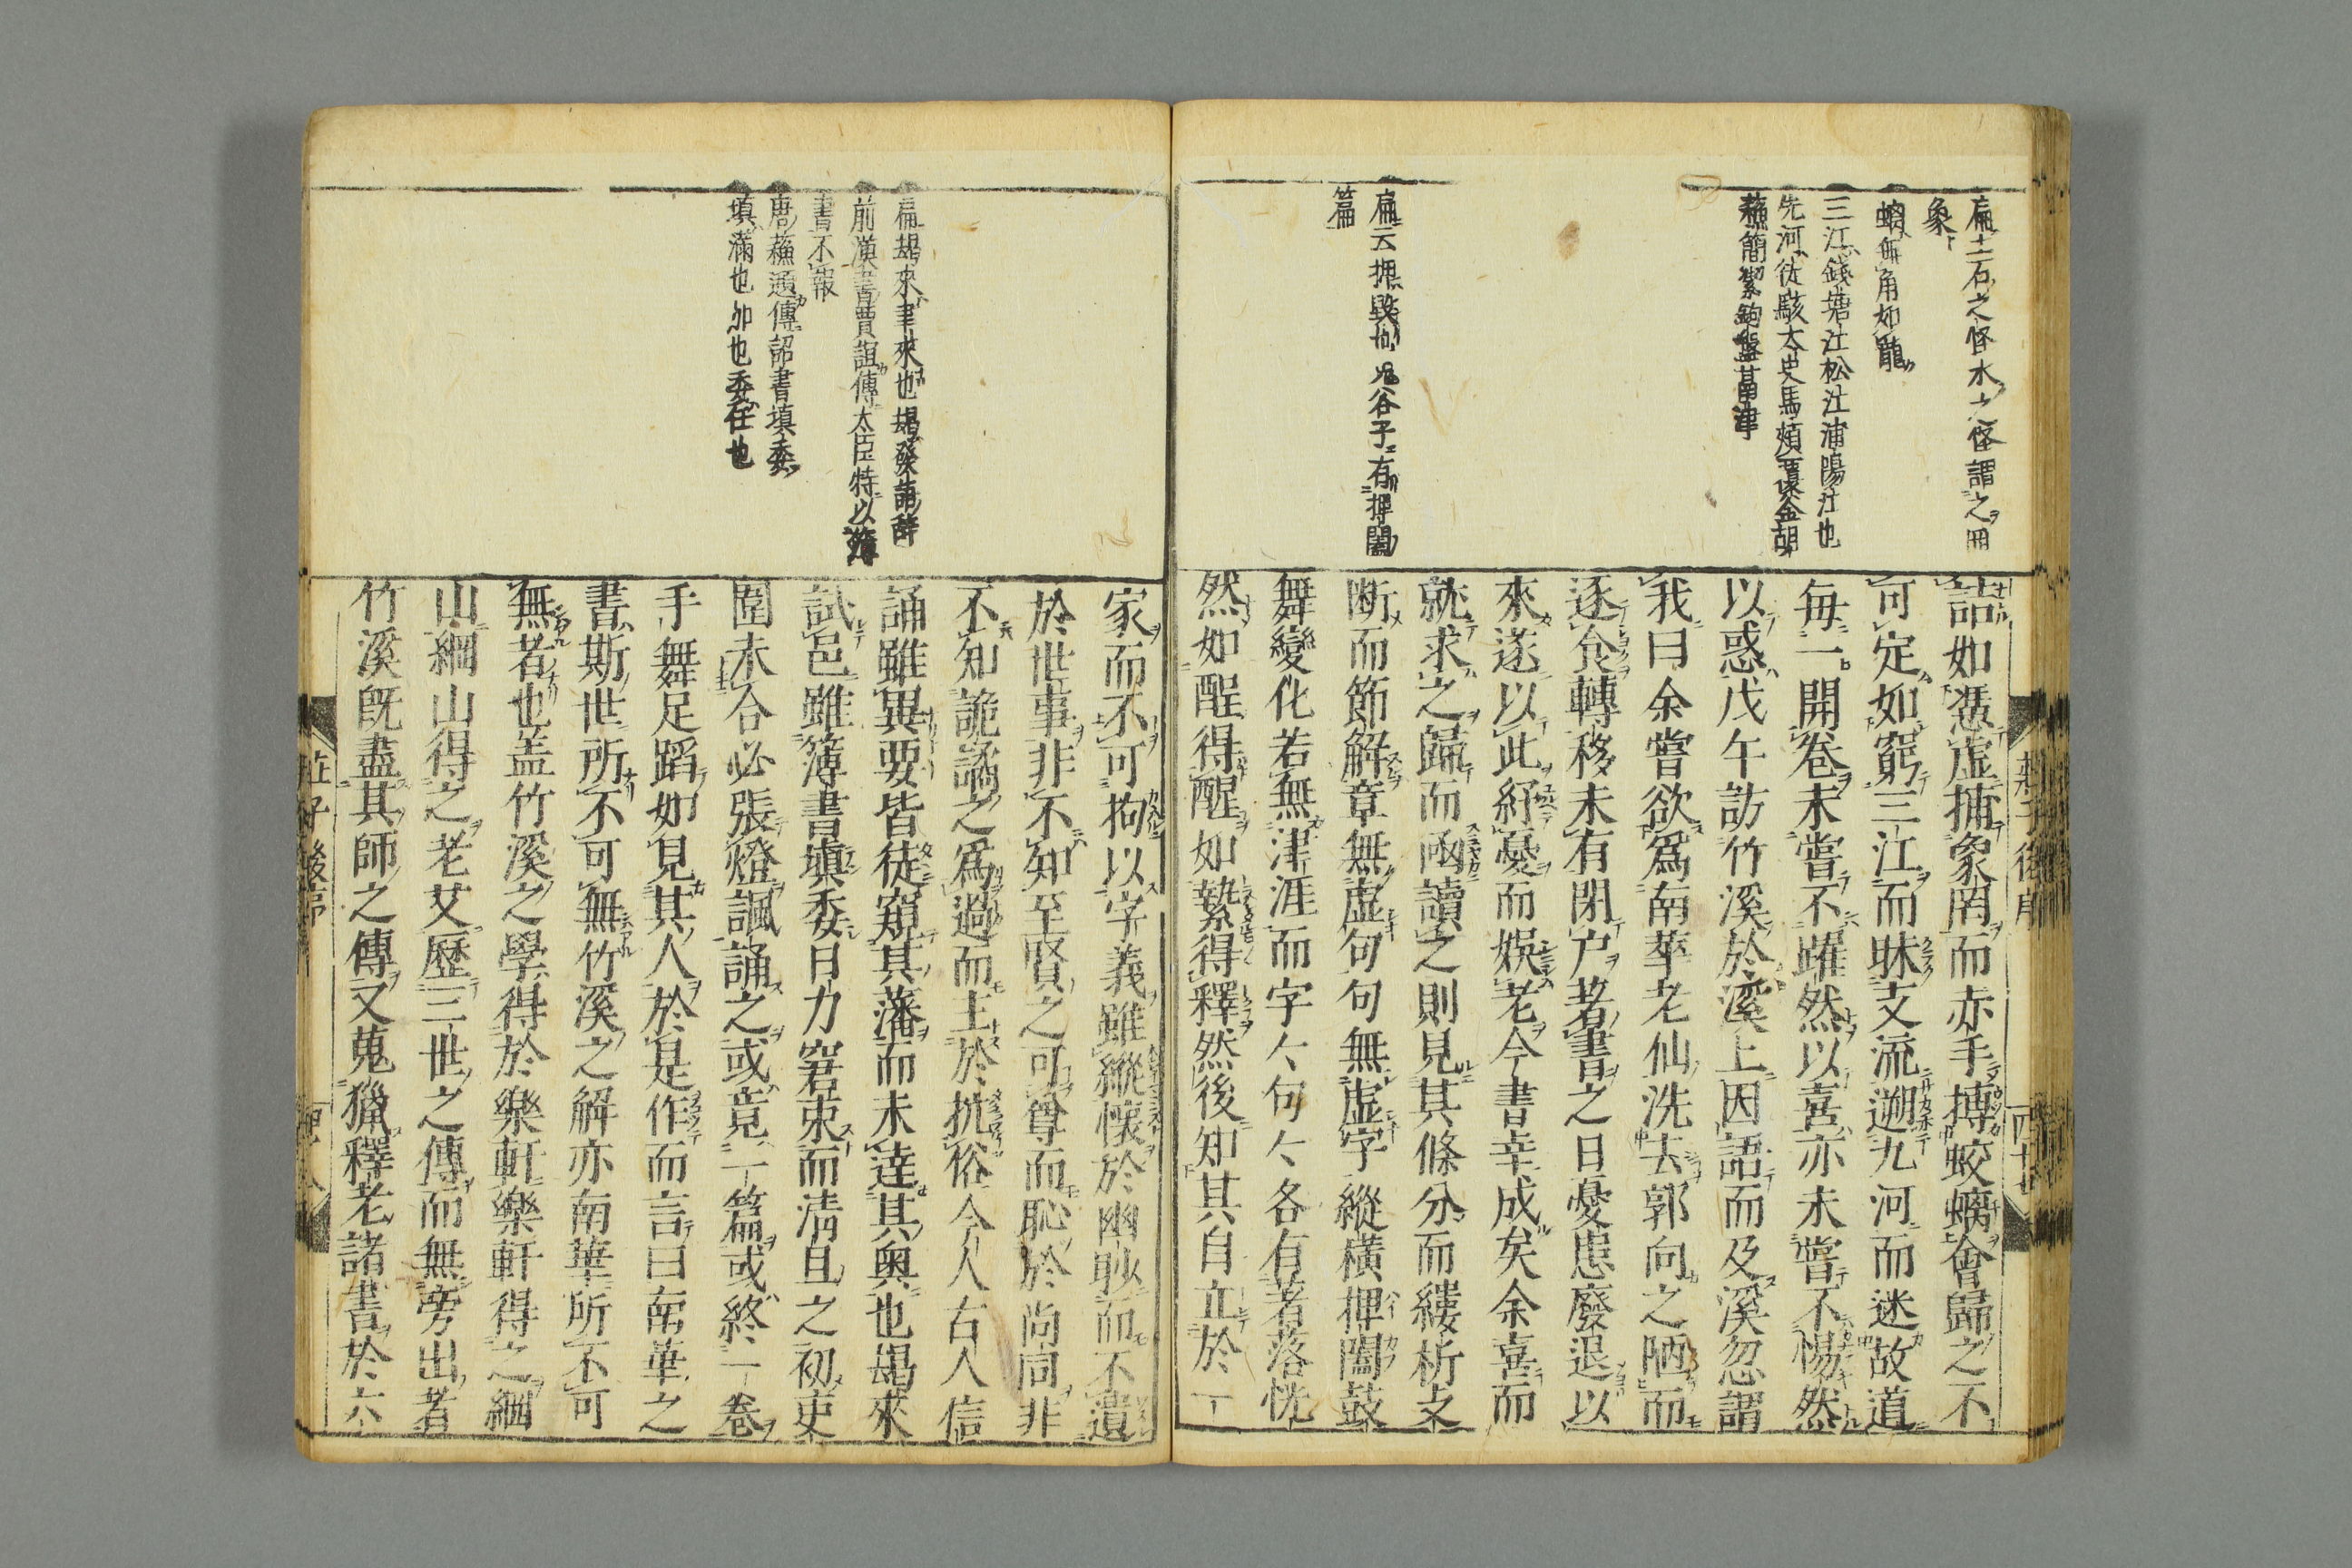 扁土石之怪水之怪謂之罔
象
螭無角如龍
三江錢塘江松江浦陽江也
先河徒駭太史馬頰覆釜胡
蘇簡潔鉤盤鬲津
扁云捭毀也鬼谷子有捭闔
篇
詰如憑虛捕象罔而赤手搏蛟螭會歸之不
可定如窮三江而昧支流遡九河而迷故道
每一開卷未嘗不躍然以喜亦未嘗不惕然
以惑戊午訪竹溪於溪上因語而及溪忽謂
我曰余嘗欲爲南華老仙洗去郭向之陋而
逐食轉移未有閉户著書之日憂患廢退以
來遂以此紓憂而娛老今書幸成矣余喜而
就求之歸而亟讀之則見其條分而縷析支
断而節解章無虛句句無虛字縱橫捭闔鼓
舞變化若無津涯而字々句々各有著落恍
然如酲得醒如縶得釋然後知其自立於一
莊子後序
四十七
扁朅來聿來也朅發語辭
前漢書賈誼傳大臣特以簿
書不報
唐蘓通傳詔書填委
填滿也加也委任也
家而不可拘以字義雖縱懷於幽眇而不遺
於世事非不知至賢之可尊而恥於尚同非
不知詭譎之爲過而主於抗俗今人古人信
誦雖異要皆徒窺其藩而未達其奥也朅來
試邑雖簿書填委日力窘束而清旦之初吏
圍未合必張燈諷誦之或竟一篇或終一卷
手舞足蹈如見其人於是作而言曰南華之
書斯世所不可無竹溪之解亦南華所不可
無者也盖竹溪之學得於樂軒樂軒得之網
山網山得之老艾歷三世之傳而無旁出者
竹溪既盡其師之傳又蒐獵釋老諸書於六
莊子後序